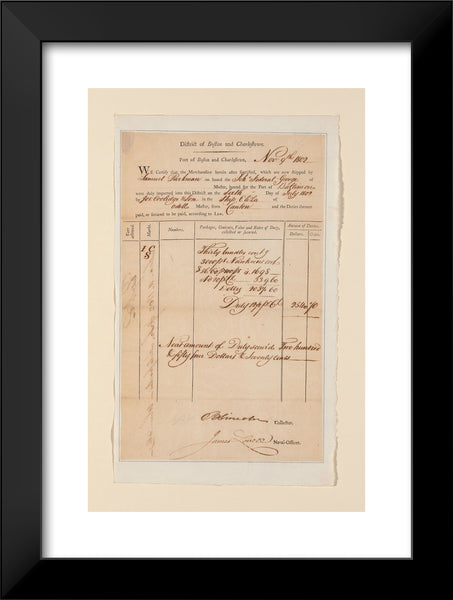 District of Boston and Charlestown.
Port of Boston and Charlestown, Nov 9th 1802
WE Certify that the Merchandise herein after specified, which are now shipped by
Samuel Parkman on board the Sch Federal George of
Master, bound for the Port of Baltimore
were duly imported into this District on the Sixth Day of July 1802
by Jos Coolidge & Son in the Ship
Master, from Canton and the Duties secured
paid, or secured to be paid, according to Law.
Entry Inward. Marks Numbers. Packages, Contents, Value and Rates of Duty, collected or secured. Amount of Duties.
Dollars. Cents.
I C Thirty bundles cont'g
S 3000 ps Nankeens
1698
339 60
Dolls 2037 60
Duty 254 70
Neat amount of Duty secured Two hundred
& fifty four Dollars & Seventy Cents
B Lincoln Collector.
James Naval-Officer.